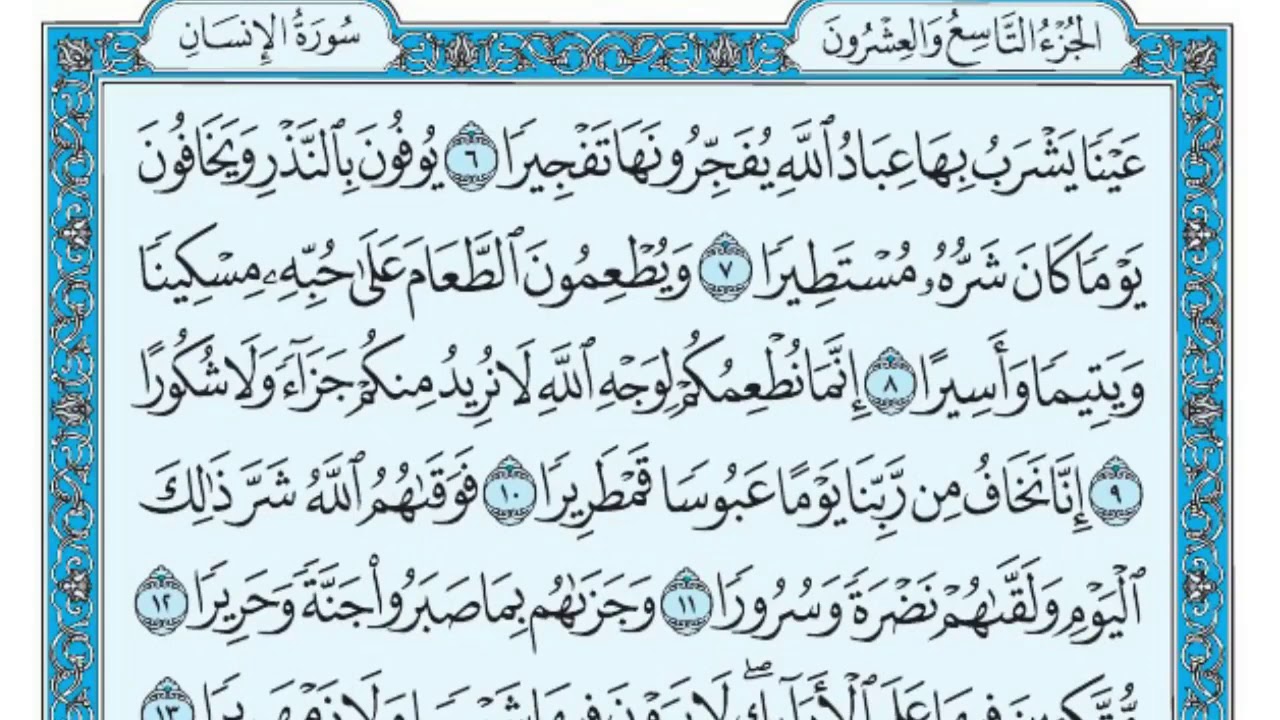 الجُزْءُ التَّاسِعُ وَالعِشْرُونَ
سُورَةُ الإِنسَانِ
عَيْنٗا يَشْرَبُ بِهَا عِبَادُ ٱللَّهِ يُفَجِّرُونَهَا تَفْجِيرٗا ٦ يُوفُونَ بِٱلنَّذْرِ وَيَخَافُونَ
يَوْمٗا كَانَ شَرُّهُۥ مُسْتَطِيرٗا ٧ وَيُطْعِمُونَ ٱلطَّعَامَ عَلَىٰ حُبِّهِۦ مِسْكِينٗا
وَيَتِيمٗا وَأَسِيرًا ٨ إِنَّمَا نُطْعِمُكُمْ لِوَجْهِ ٱللَّهِ لَا نُرِيدُ مِنكُمْ جَزَآءٗ وَلَا شُكُورًا
٩ إِنَّا نَخَافُ مِن رَّبِّنَا يَوْمًا عَبُوسٗا قَمْطَرِيرٗا ١٠ فَوَقَىٰهُمُ ٱللَّهُ شَرَّ ذَٰلِكَ
ٱلْيَوْمِ وَلَقَّىٰهُمْ نَضْرَةٗ وَسُرُورٗا ١١ وَجَزَىٰهُم بِمَا صَبَرُوا۟ جَنَّةٗ وَحَرِيرٗا ١٢
مُّتَّكِـِٔينَ فِيهَا عَلَى ٱلْأَرَآئِكِۖ لَا يَرَوْنَ فِيهَا شَمْسٗا وَلَا زَمْهَرِيرٗا ١٣